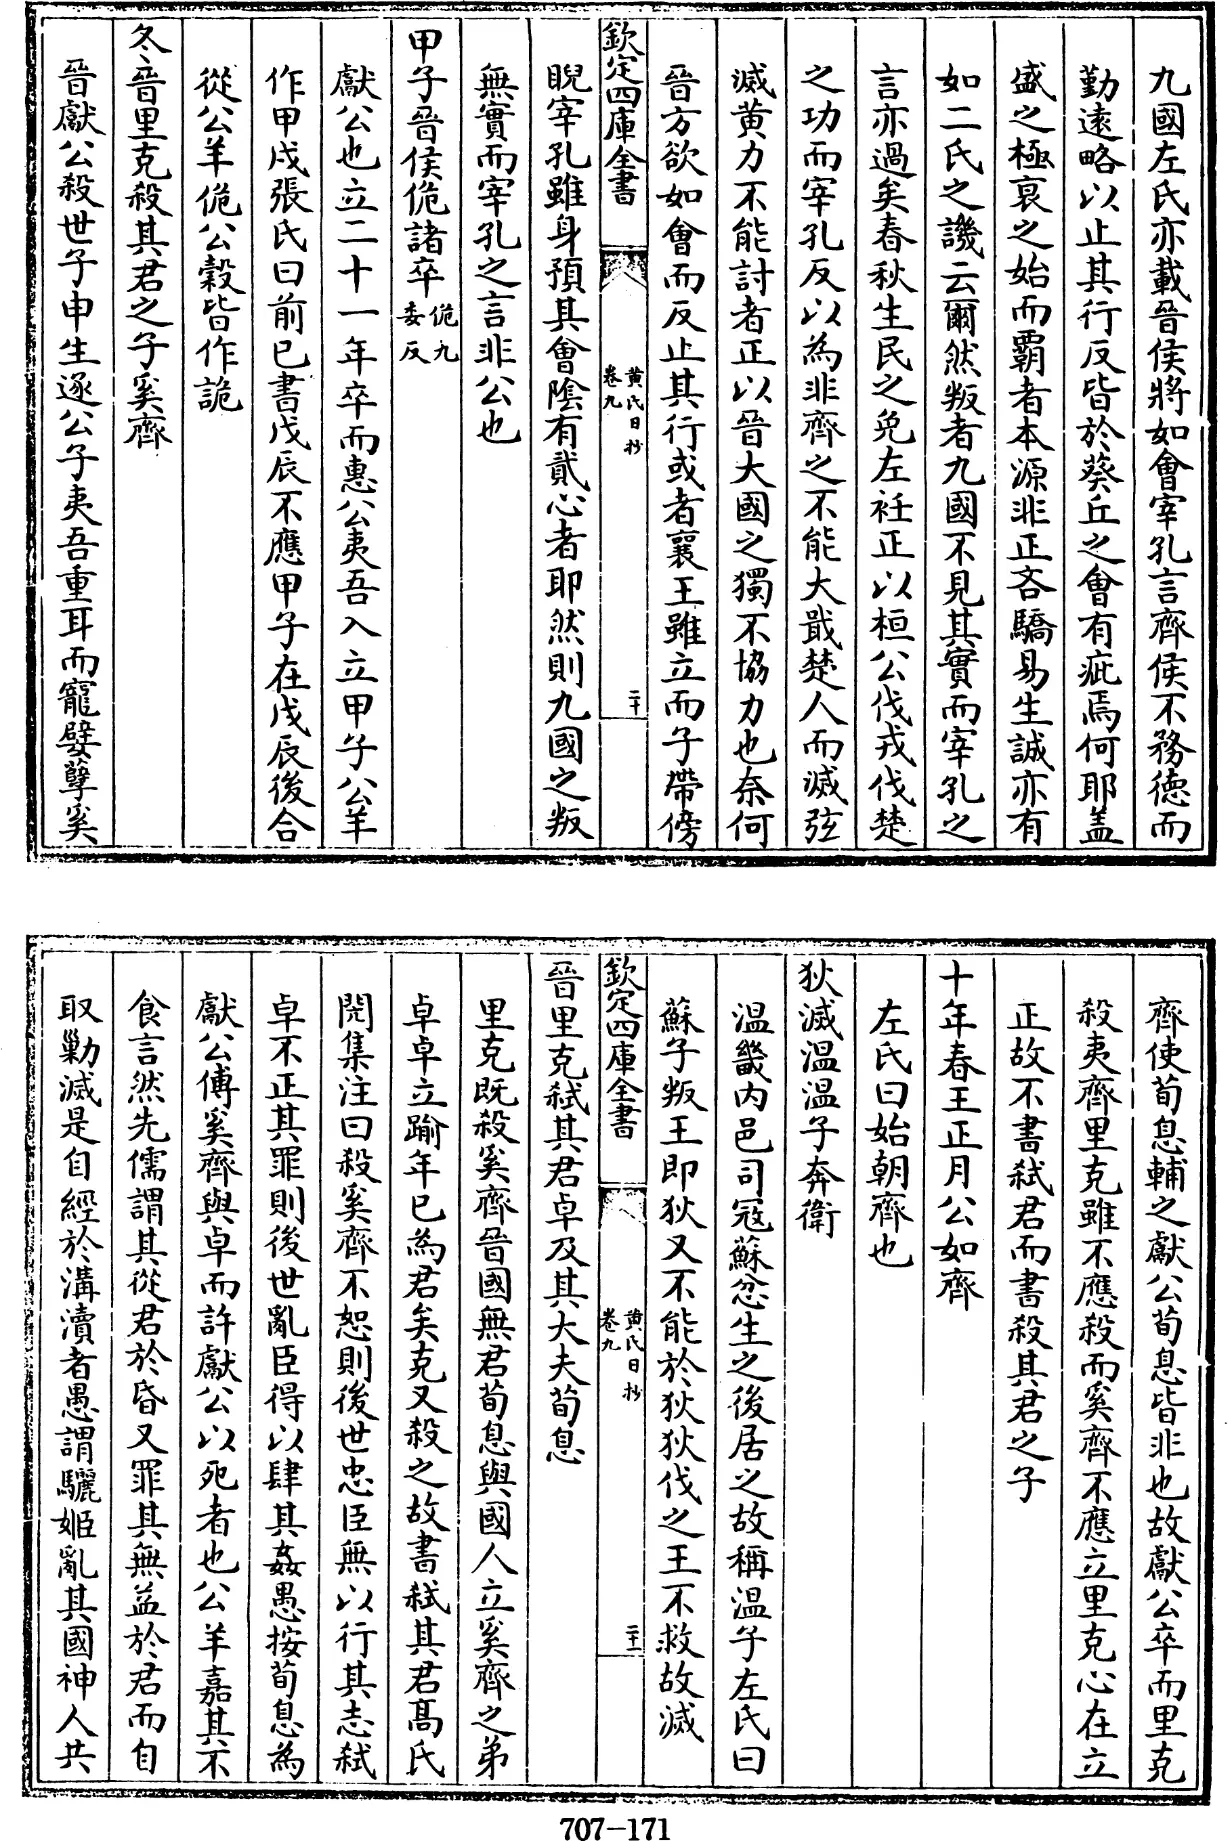 九國左氏亦載晉侯將如會宰孔言齊侯不務徳而
勤逺略以止其行反皆於葵丘之會有疵焉何耶盖
盛之極衰之始而覇者本源非正吝驕易生誠亦有
如二氏之譏云爾然叛者九國不見其實而宰孔之
言亦過矣春秋生民之免左衽正以桓公伐戎伐楚
之功而宰孔反以為非齊之不能大戢楚人而滅弦
滅黄力不能討者正以晉大國之獨不協力也奈何
晉方欲如會而反止其行或者襄王雖立而子帶傍
欽定四庫全書
黄氏日抄
卷九
二十
睨宰孔雖身預其會陰有貳心者耶然則九國之叛
無實而宰孔之言非公也
甲子晉侯佹諸卒佹九委反
獻公也立二十一年卒而惠公夷吾入立甲子公羊
作甲戌張氏曰前已書戊辰不應甲子在戊辰後合
從公羊佹公穀皆作詭
冬晉里克殺其君之子奚齊
晉獻公殺世子申生逐公子夷吾重耳而寵嬖孽奚
齊使荀息輔之獻公荀息皆非也故獻公卒而里克
殺夷齊里克雖不應殺而奚齊不應立里克心在立
正故不書弑君而書殺其君之子
十年春王正月公如齊
左氏曰始朝齊也
狄滅温温子奔衛
温畿内邑司冦蘇忿生之後居之故稱温子左氏曰
蘇子叛王即狄又不能於狄狄伐之王不救故滅
欽定四庫全書
黄氏日抄
卷九
二十一
晉里克弑其君卓及其大夫荀息
里克既殺奚齊晉國無君荀息與國人立奚齊之弟
卓卓立踰年已為君矣克又殺之故書弑其君髙氏
閌集注曰殺奚齊不恕則後世忠臣無以行其志弑
卓不正其罪則後世亂臣得以肆其姦愚按荀息為
獻公傅奚齊與卓而許獻公以死者也公羊嘉其不
食言然先儒謂其從君於昏又罪其無益於君而自
取勦滅是自經於溝瀆者愚謂驪姬亂其國神人共
707-171